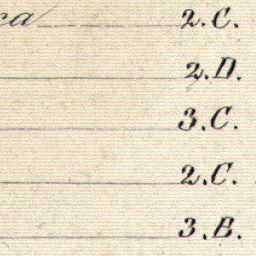 ca 2.C.
2.D.
3.C.
2.C.
3.B.